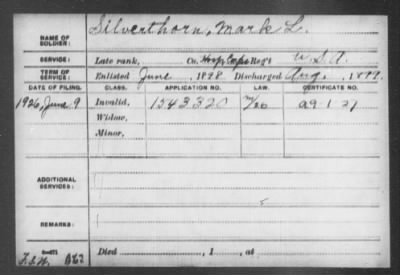 NAME OF SOLDIER: Silverthorn, Mark L.
SERVICE: Late rank, Co. Hosp Corps Reg't U.S.A.
TERM OF SERVICE: Enlisted June, 1898. Discharged Aug., 1899.
DATE OF FILING. CLASS. APPLICATION NO. LAW. CERTIFICATE NO.
1926, June 9 Invalid, 1543320 A 9-1-27
Widow,
Minor,
ADDITIONAL SERVICES:
REMARKS:
Died, 1, at